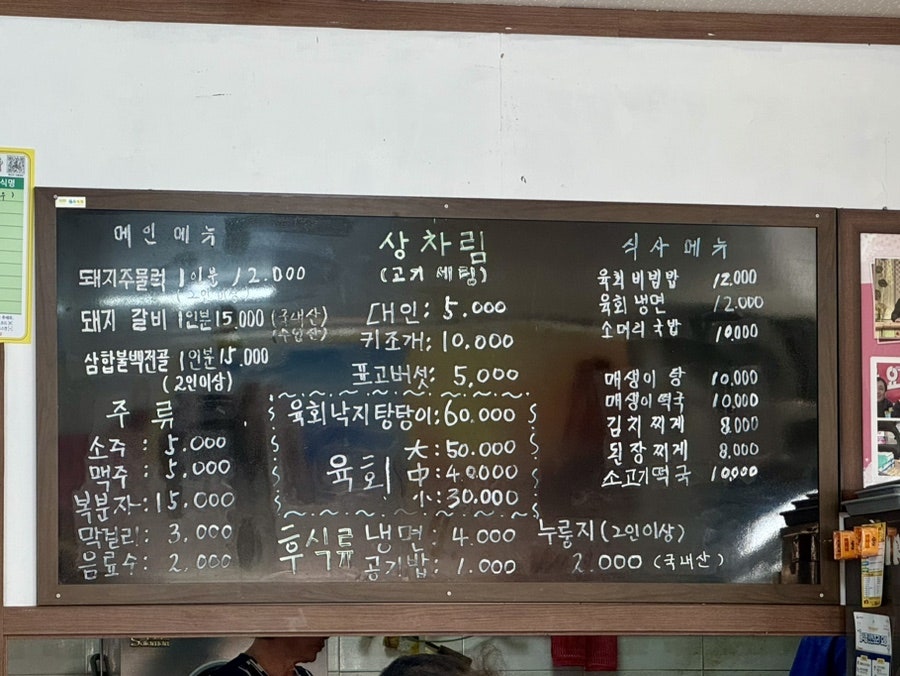 메인메뉴
돼지주물럭 1인분 12.000
(2인이상)
돼지 갈비 1인분 15.000 (국내산)
(수입산)
삼합불백전골 1인분 15.000
(2인이상)
주 류
소주 : 5.000
맥주 : 5.000
복분자 : 15.000
막걸리 : 3.000
음료수 : 2.000
상차림
(고기 세팅)
대인 : 5.000
키조개 : 10.000
표고버섯 : 5,000
육회낙지탕탕이 : 60.000
육회
大 : 50.000
中 : 40.000
小 : 30.000
후식류 냉면 : 4.000
공기밥 : 1.000
식사메뉴
육회비빔밥 12.000
육회 냉면 12.000
소머리 국밥 10.000
매생이 탕 10.000
매생이떡국 10.000
김치 찌게 8.000
된장찌게 8.000
소고기떡국 10.000
누룽지 (2인이상)
2.000 (국내산)
식명